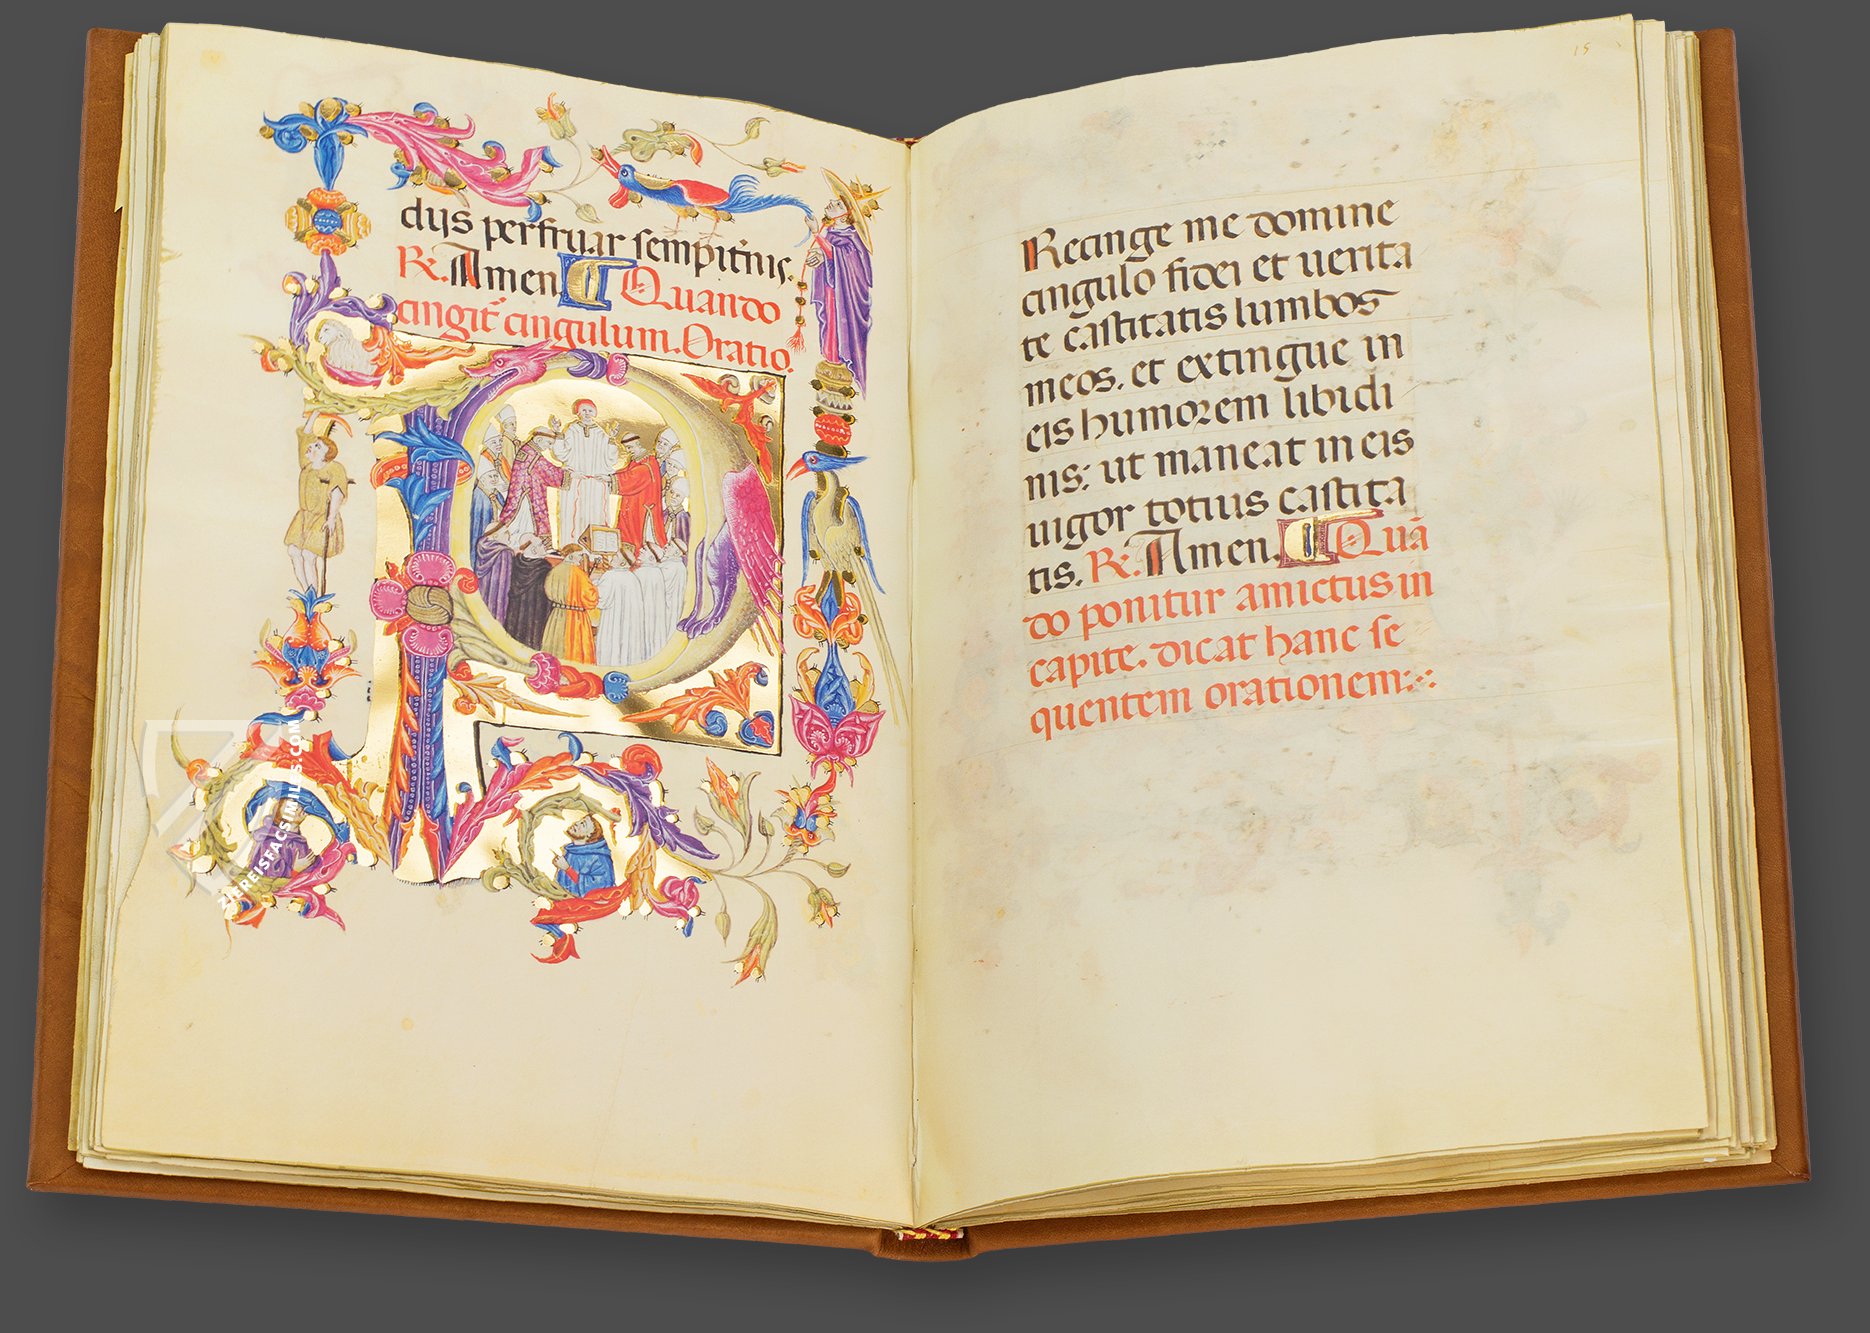 dijs perfruar sempit̄nis.
R. Amen ¶ Quando
cingit᷑ cingulum. Oratio.
R
ZIEREISFACSIMILES.COM
15
Recinge me domine
cingulo fidei et uerita
te castitatis lumbos
meos. et extingue in
eis humorem libidi
nis: ut maneat in eis
uigor totius castita
tis. R. Amen. ¶ Quā
do ponitur amictus in
capite. dicat hanc se
quentem orationem: